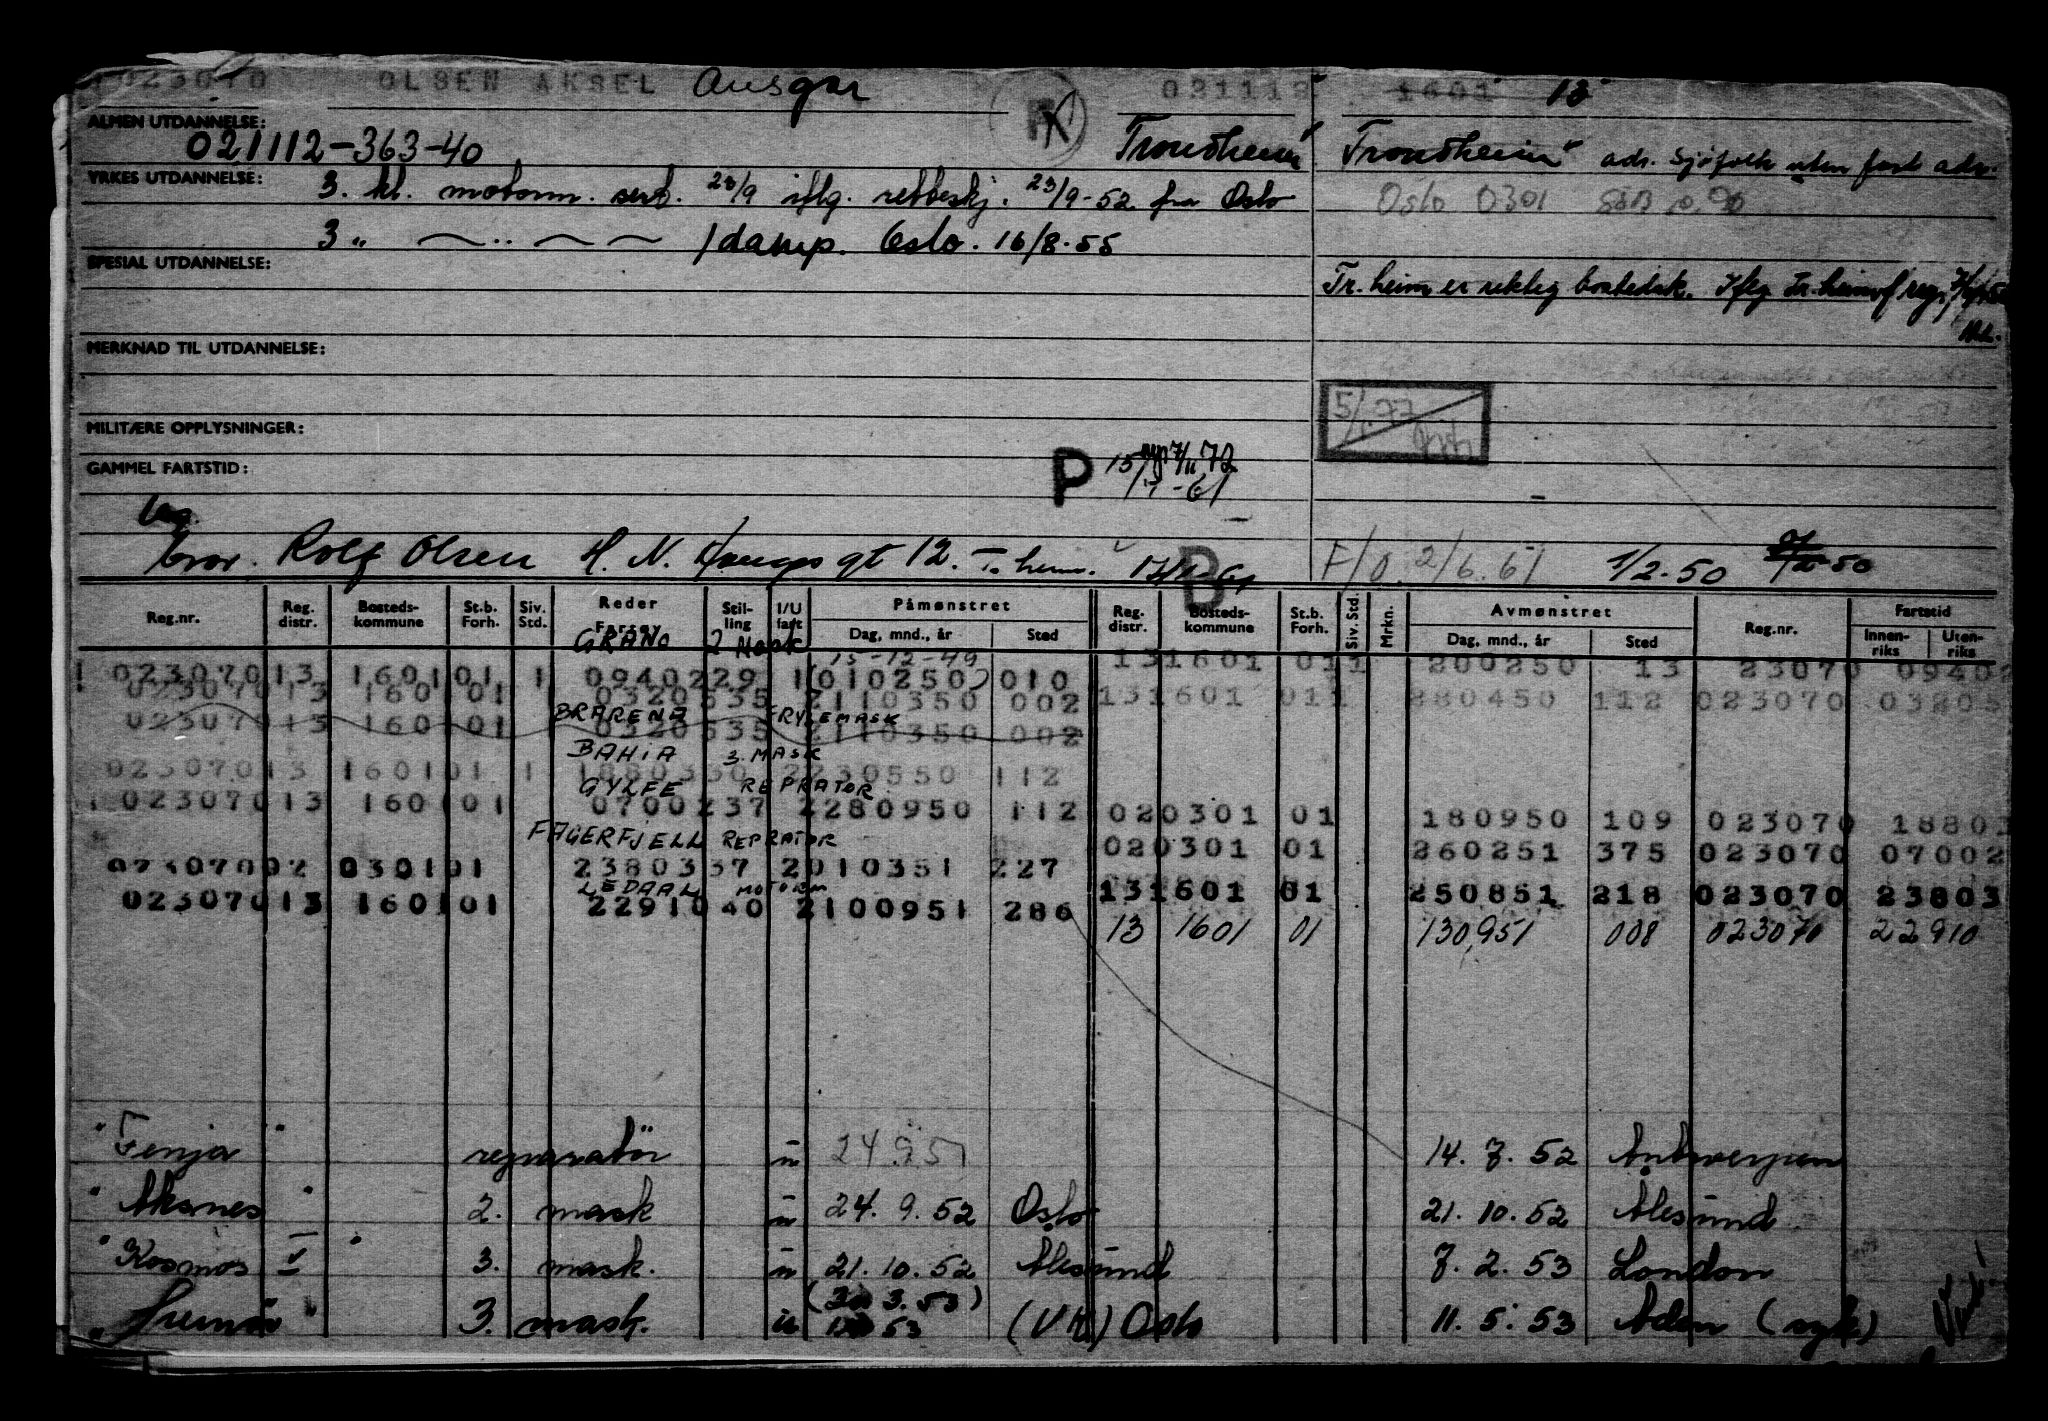 023070 OLSEN AKSEL Ansgar 021112 1601 13
ALMEN UTDANNELSE:
021112-363-40 Trondheim Trondheim adr. Sjøfolk uten fast adr.
YRKES UTDANNELSE: 3. kl. motorm. sert. 23/9 iflg. rettbeskj. 23/9-52 fra Oslo
Oslo 0301
3 " /damp. Oslo. 16/8-55
SPESIAL UTDANNELSE:
Tr.heim er riktig bostedsk. Iflg Tr.heim
MERKNAD TIL UTDANNELSE:
5/ 77
MILITÆRE OPPLYSNINGER:
GAMMEL FARTSTID: P 72
15/ -61
bror. Rolf Olsen H. N. Haugs gt 12. T.heim. B F/O. 2/6.61 1/2.50
Reg.nr. Reg. distr. Bosteds-kommune St.b. Forh. Siv. Std. Reder Fartøy Stil-ling I/U fart Påmønstret Dag, mnd., år Sted Reg. distr. Bosteds-kommune St.b. Forh. Siv. Std. Mrkn. Avmønstret Dag, mnd., år Sted Reg.nr. Fartstid Innen-riks Uten-riks
GRANO 2 Mask
15-12-49
023070 13 1601 01 1 09402 29 1 010250 010 13 1601 01 1 200250 13 23070 09402
023070 13 1601 01 1 03205 35 2 110350 002 13 1601 01 1 280450 112 023070 03205
BRARENA FRYSEMASK
023070 13 1601 01 1 03205 35 2 110350 002
BAHIA 3. MASK
023070 13 1601 01 1 18803 30 2 230550 112
GYLFE REPRATOR
023070 13 1601 01 07002 37 2 280950 112 02 0301 01 180950 109 023070 18803
FAGERFJELL REPRATOR
02 0301 01 260251 375 023070 07002
023070 02 0301 01 23803 37 2 010351 227
LEDAAL MOTORM
13 1601 01 250851 218 023070 23803
023070 13 1601 01 22910 40 2 100951 286
13 1601 01 130951 008 023070 22910
"Fenja" reparatør u 24.9.51 14.7.52 Antwerpen
"Aksnes" 2. mask u 24.9.52 Oslo 21.10.52 Ålesund
"Kosmos V" 3. mask. u 21.10.52 Ålesund 7.2.53 London
3. mask. u 53 Oslo 11.5.53 Aden (syk)